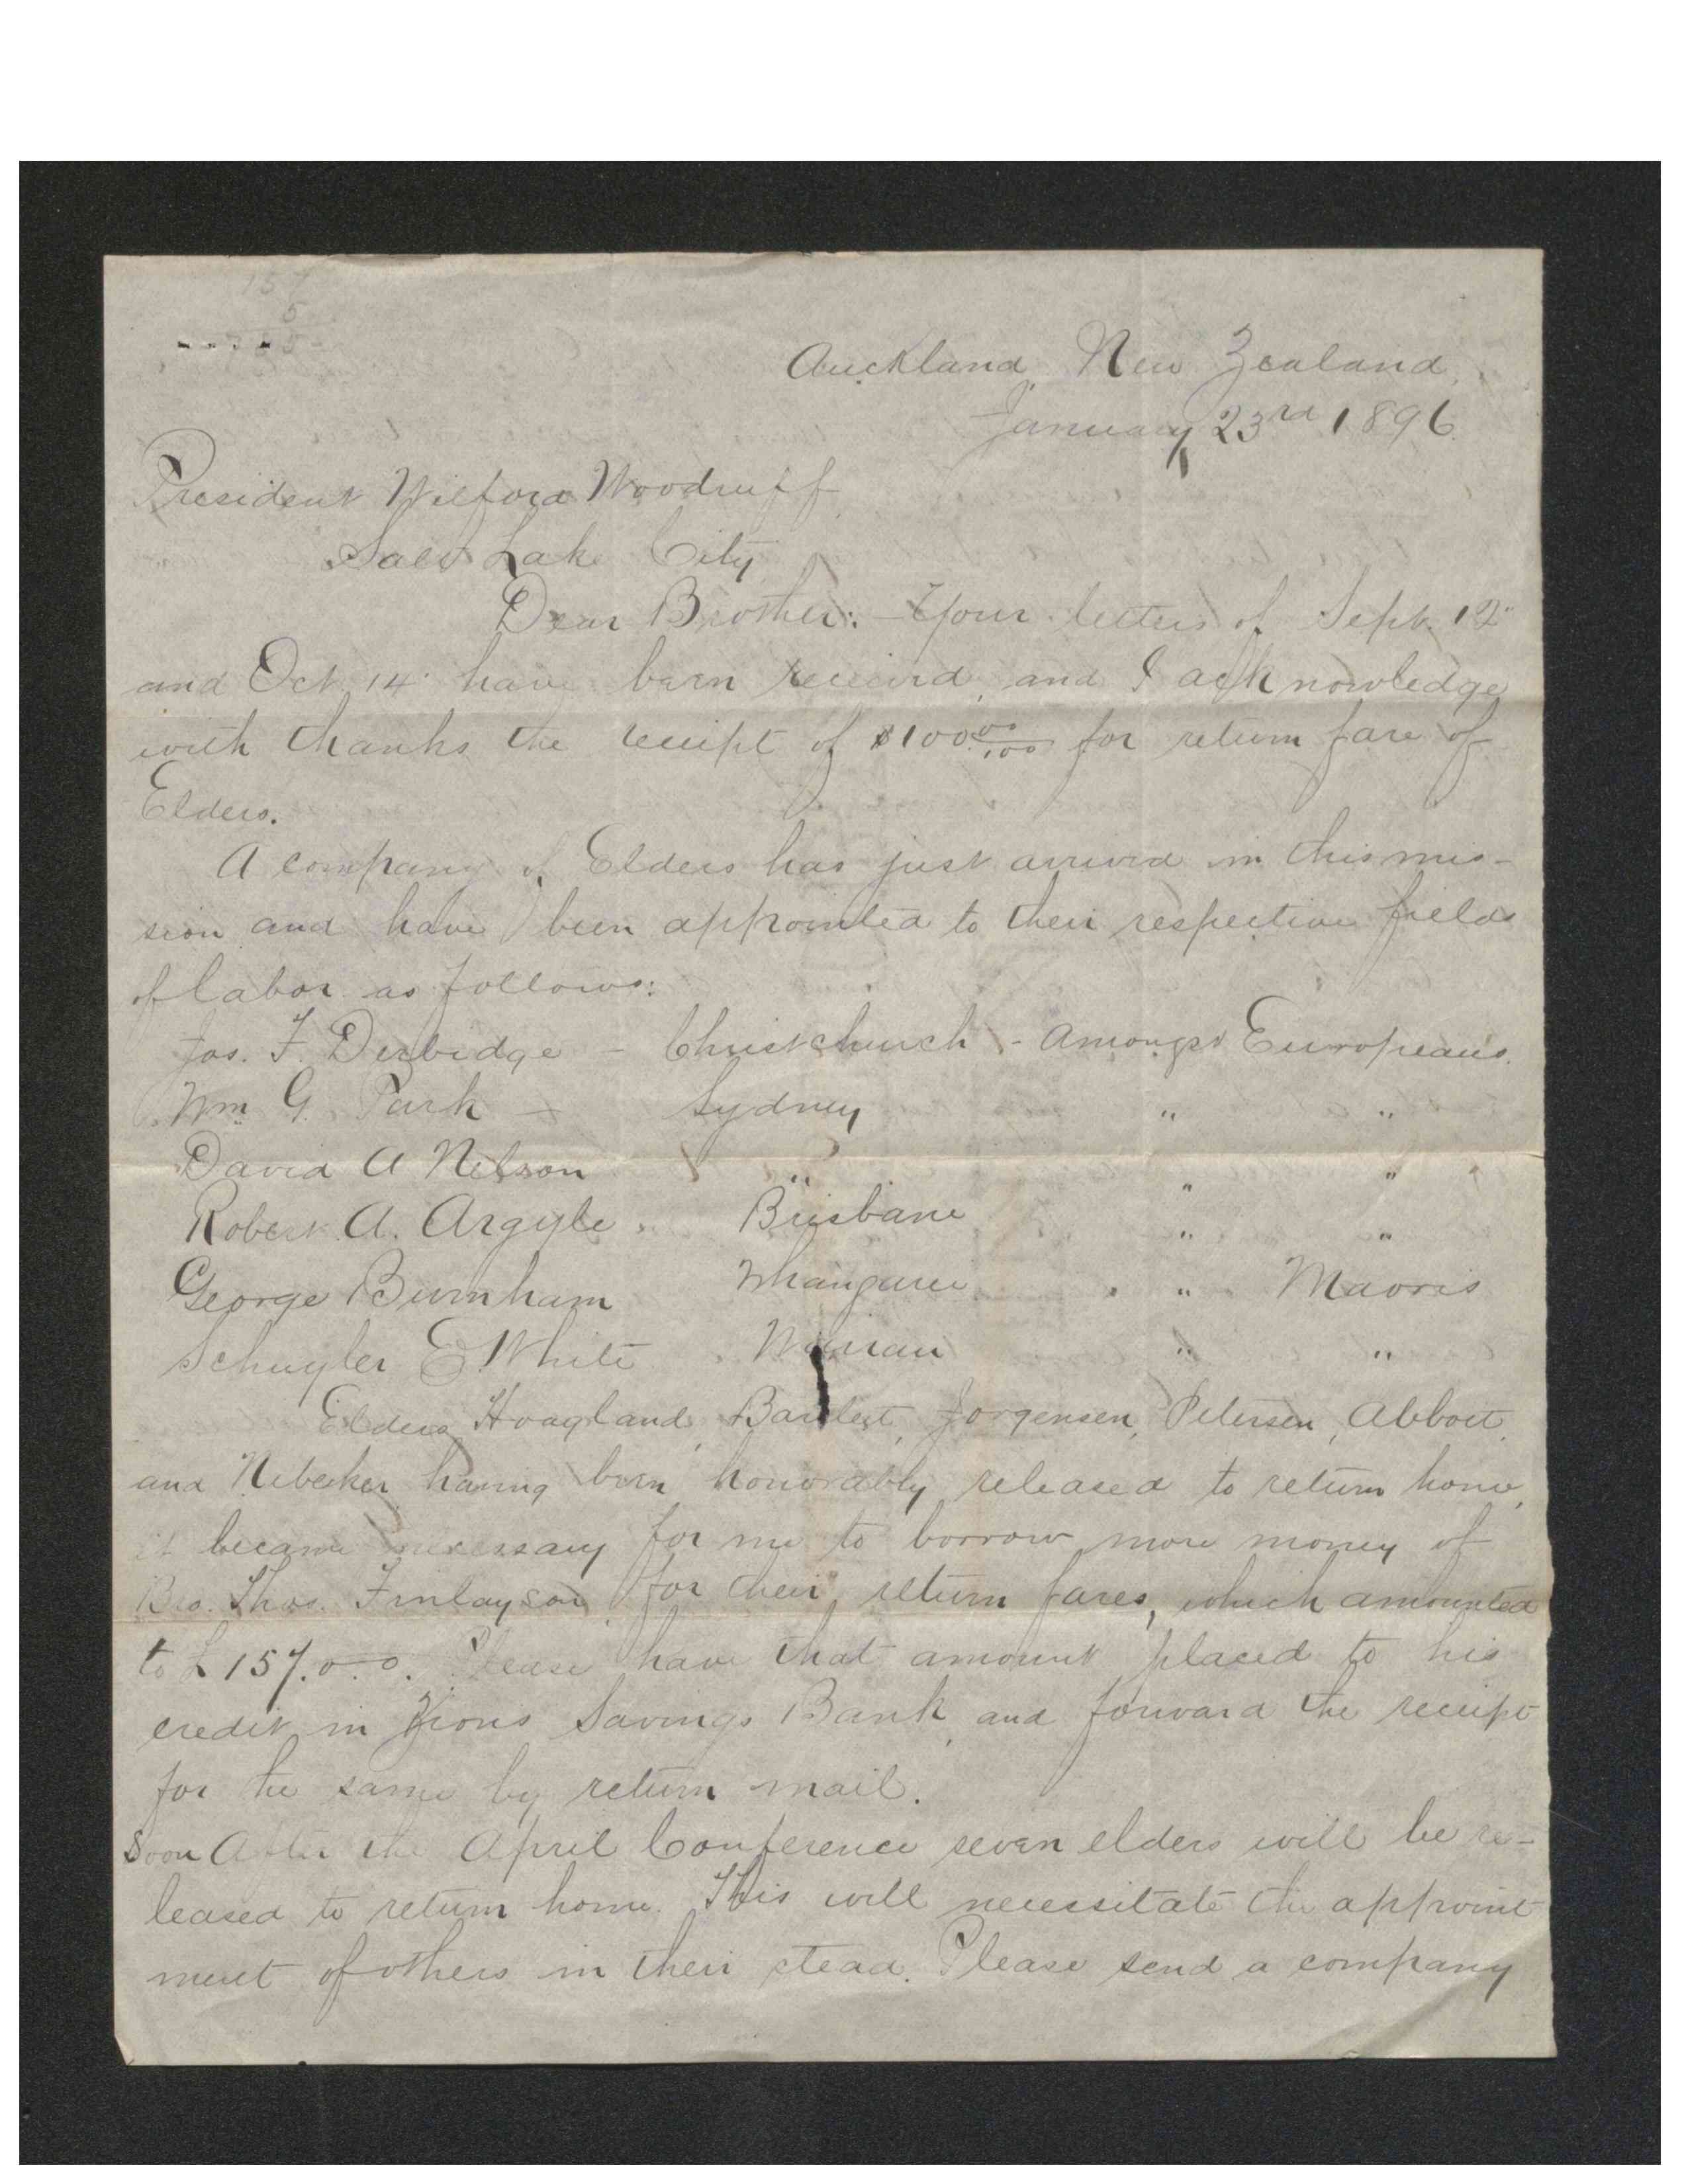 157
5
785
Auckland, New Zealand,
January 23rd 1896.
President Wilford Woodruff
Salt Lake City
Dear Brother:- Your letters of Sept. 12"
and Oct 14" have been received, and I acknowledge
with thanks the receipt of $100 00/100 for return fare of
Elders.
A company of Elders has just arrived in this mis-
sion and have been appointed to their respective fields
of labor as follows:
Jos. F. Derbidge - Christchurch - Amongst Europeans.
Wm G. Park - Sydney " "
David A Nelson " " "
Robert A. Argyle. Brisbane " "
George Burnham Whangarei " Maoris
Schuyler E White Wairau " "
Elders Hoagland, Bartlett, Jorgensen, Petersen, Abbott,
and Nebeker having been honorably released to return home,
it became necessary for me to borrow more money of
Bro. Thos. Finlayson for their return fares, which amounted
to £157.0-0. Please have that amount placed to his
credit in Zions Savings Bank, and forward the receipt
for the same by return mail.
Soon After the April Conference seven elders will be re-
leased to return home. This will necessitate the appoint
ment of others in their stead. Please send a company